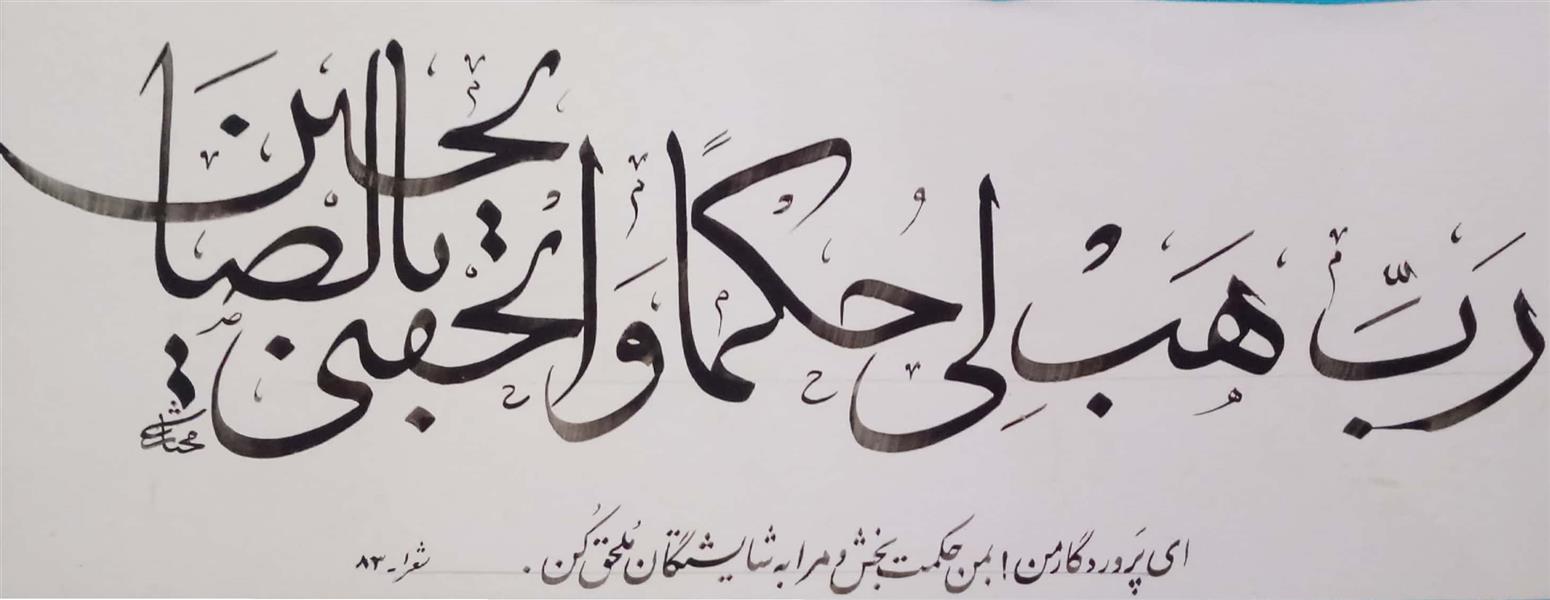 رَبِّ هَبْ لِي حُكْمًا وَالْحِقْنِي بِالصَّالِحِينَ
ای پَروردگار من! بمن حکمت بخش و مرا به شایستگان مُلحق کُن.
شعرا - ۸۳